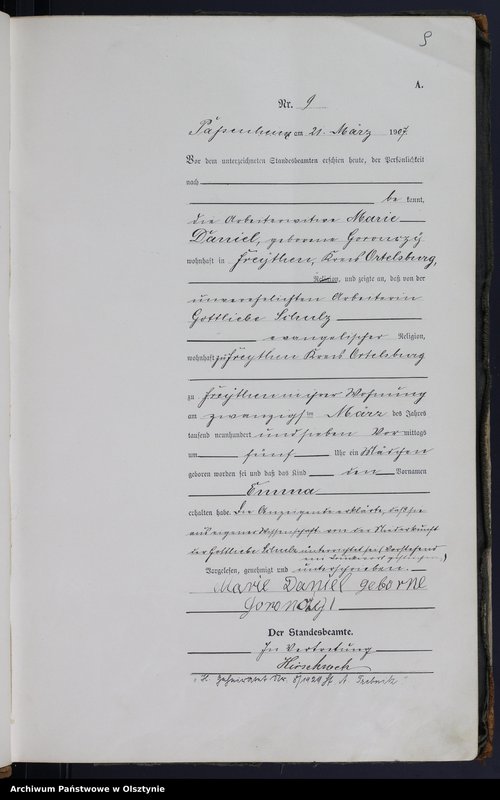 9
A.
Nr. 9
am 21. März 1907.
Vor dem unterzeichneten Standesbeamten erschien heute, der Persönlichkeit
nach
be kannt,
die Arbeiterwitwe Marie
Daniel, geborene Goronczy
wohnhaft in Kreis Ortelsburg,
Religion, und zeigte an, daß von der
unverehelichten Arbeiterin
Gottliebe Schulz
evangelischer Religion,
wohnhaft zu Kreis Ortelsburg
zu in ihrer Wohnung
am zwanzigsten März des Jahres
tausend neunhundert und sieben Vor mittags
um fünf Uhr ein Mädchen
geboren worden sei und daß das Kind den Vornamen
Emma
erhalten habe. Die Anzeigende erklärte, daß sie
aus eigener Wissenschaft von der Niederkunft
der Gottliebe Schulz unterrichtet sei. Vorstehend
ein Druckwort gestrichen.
Vorgelesen, genehmigt und unterschrieben.
Marie Daniel geborne
Goronczy
Der Standesbeamte.
In Vertretung
Archiwum Państwowe w Olsztynie